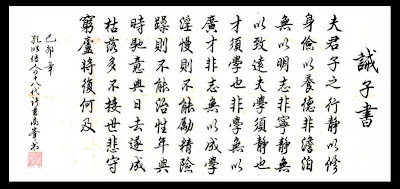 誡子書
夫君子之行靜以修
身儉以養德非澹泊
無以明志非寧靜無
以致遠夫學須靜也
才須學也非學無以
廣才非志無以成學
淫慢則不能勵精險
躁則不能治性年與
時馳意與日去遂成
枯落多不接世悲守
窮廬將復何及
己卯年
孔明傳人四十八代